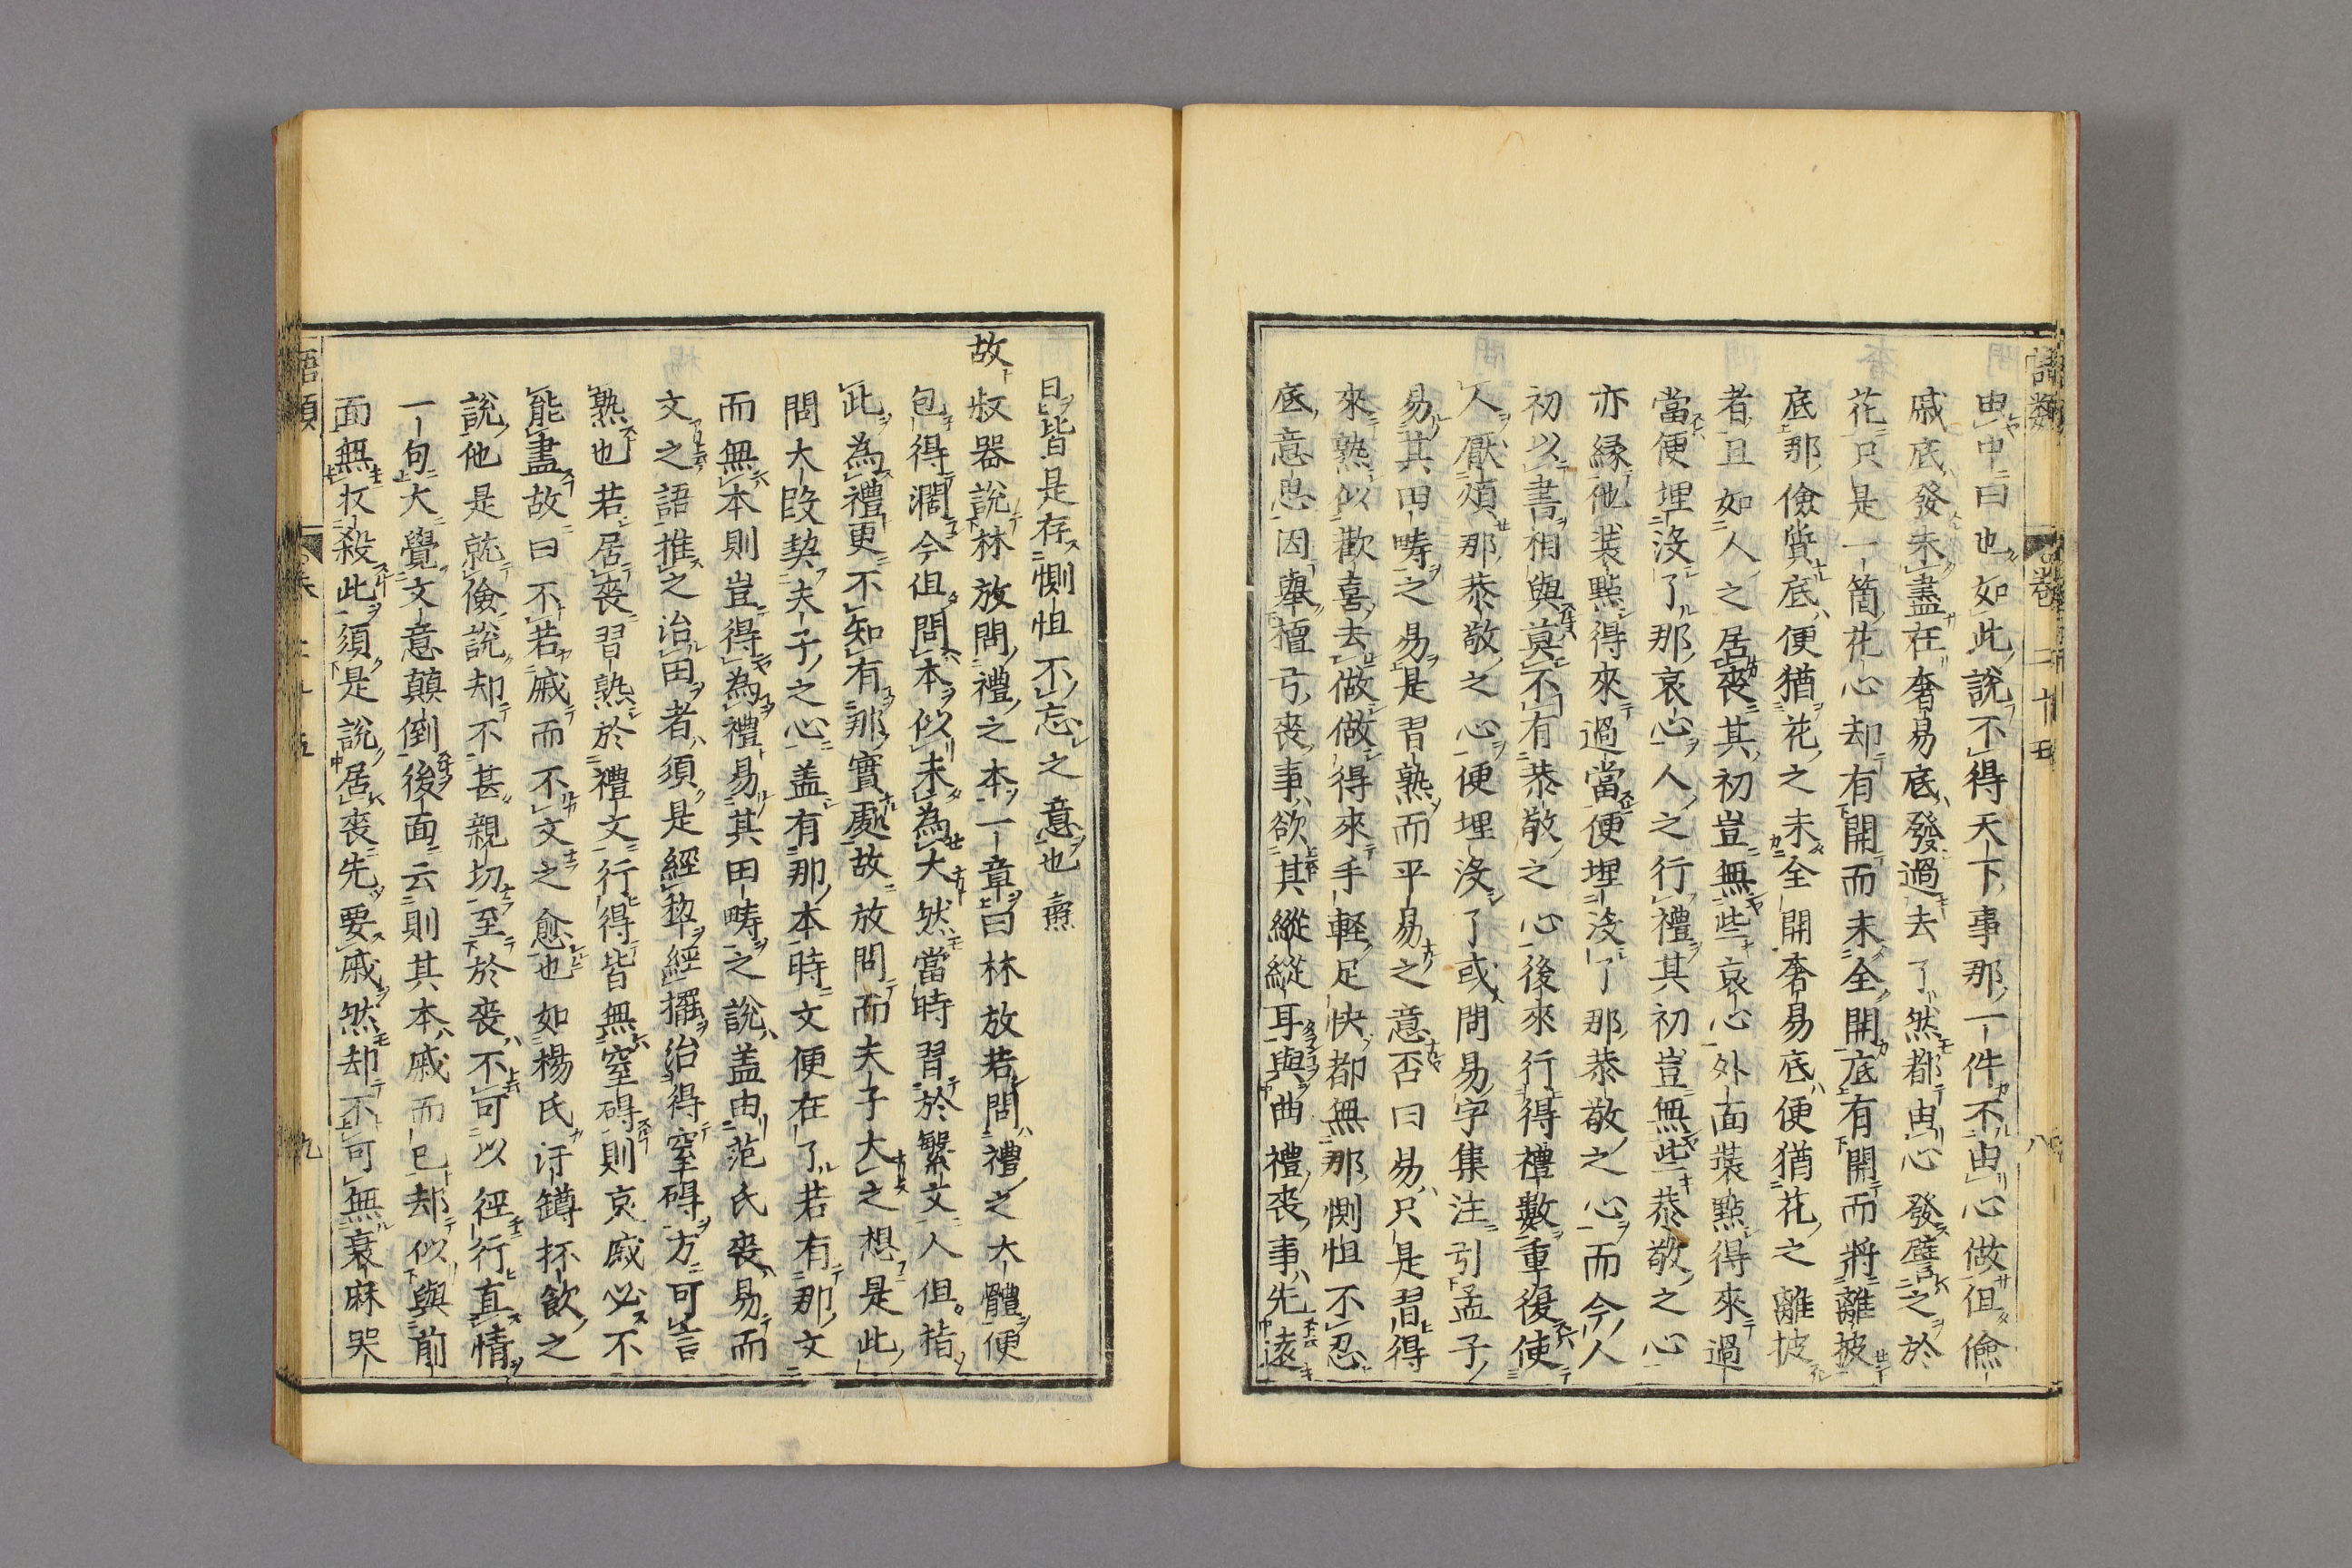 語類 卷二十五 八
由中曰也如此說不得天下事那一件不由心做但儉
戚底發未盡在奢易底發過去了然都由心發譬之於
花只是一箇花心却有開而未全開底有開而將離披
底那儉質底便猶花之未全開奢易底便猶花之離披
者且如人之居喪其初豈無些哀心外面裝點得來過
當便埋沒了那哀心人之行禮其初豈無些恭敬之心
亦緣他裝點得來過當便埋沒了那恭敬之心而今人
初以書相與莫不有恭敬之心後來行得禮數重復使
人厭煩那恭敬之心便埋沒了或問易字集注引孟子
易其田疇之易是習熟而平易之意否曰易只是習得
來熟似歡喜去做做得來手輕足快都無那惻怛不忍
底意思因舉檀弓喪事欲其縱縱耳與曲禮喪事先遠
日皆是存惻怛不忘之意也 燾
故 叔器說林放問禮之本一章曰林放若問禮之大體便
包得濶今但問本似未為大然當時習於繁文人但指
此為禮更不知有那實處故放問而夫子大之想是此
問大段契夫子之心盖有那本時文便在了若有那文
而無本則豈得為禮易其田疇之說盖由范氏喪易而
文之語推之治田者須是經犂經擺治得窒碍方可言
熟也若居喪習熟於禮文行得皆無窒碍則哀戚必不
能盡故曰不若戚而不文之愈也如楊氏汙罇抔飲之
說他是就儉說却不甚親切至於喪不可以徑行直情
一句大覺文意顛倒後面云則其本戚而已却似與前
面無收殺此須是說居喪先要戚然却不可無衰麻哭
語類 九